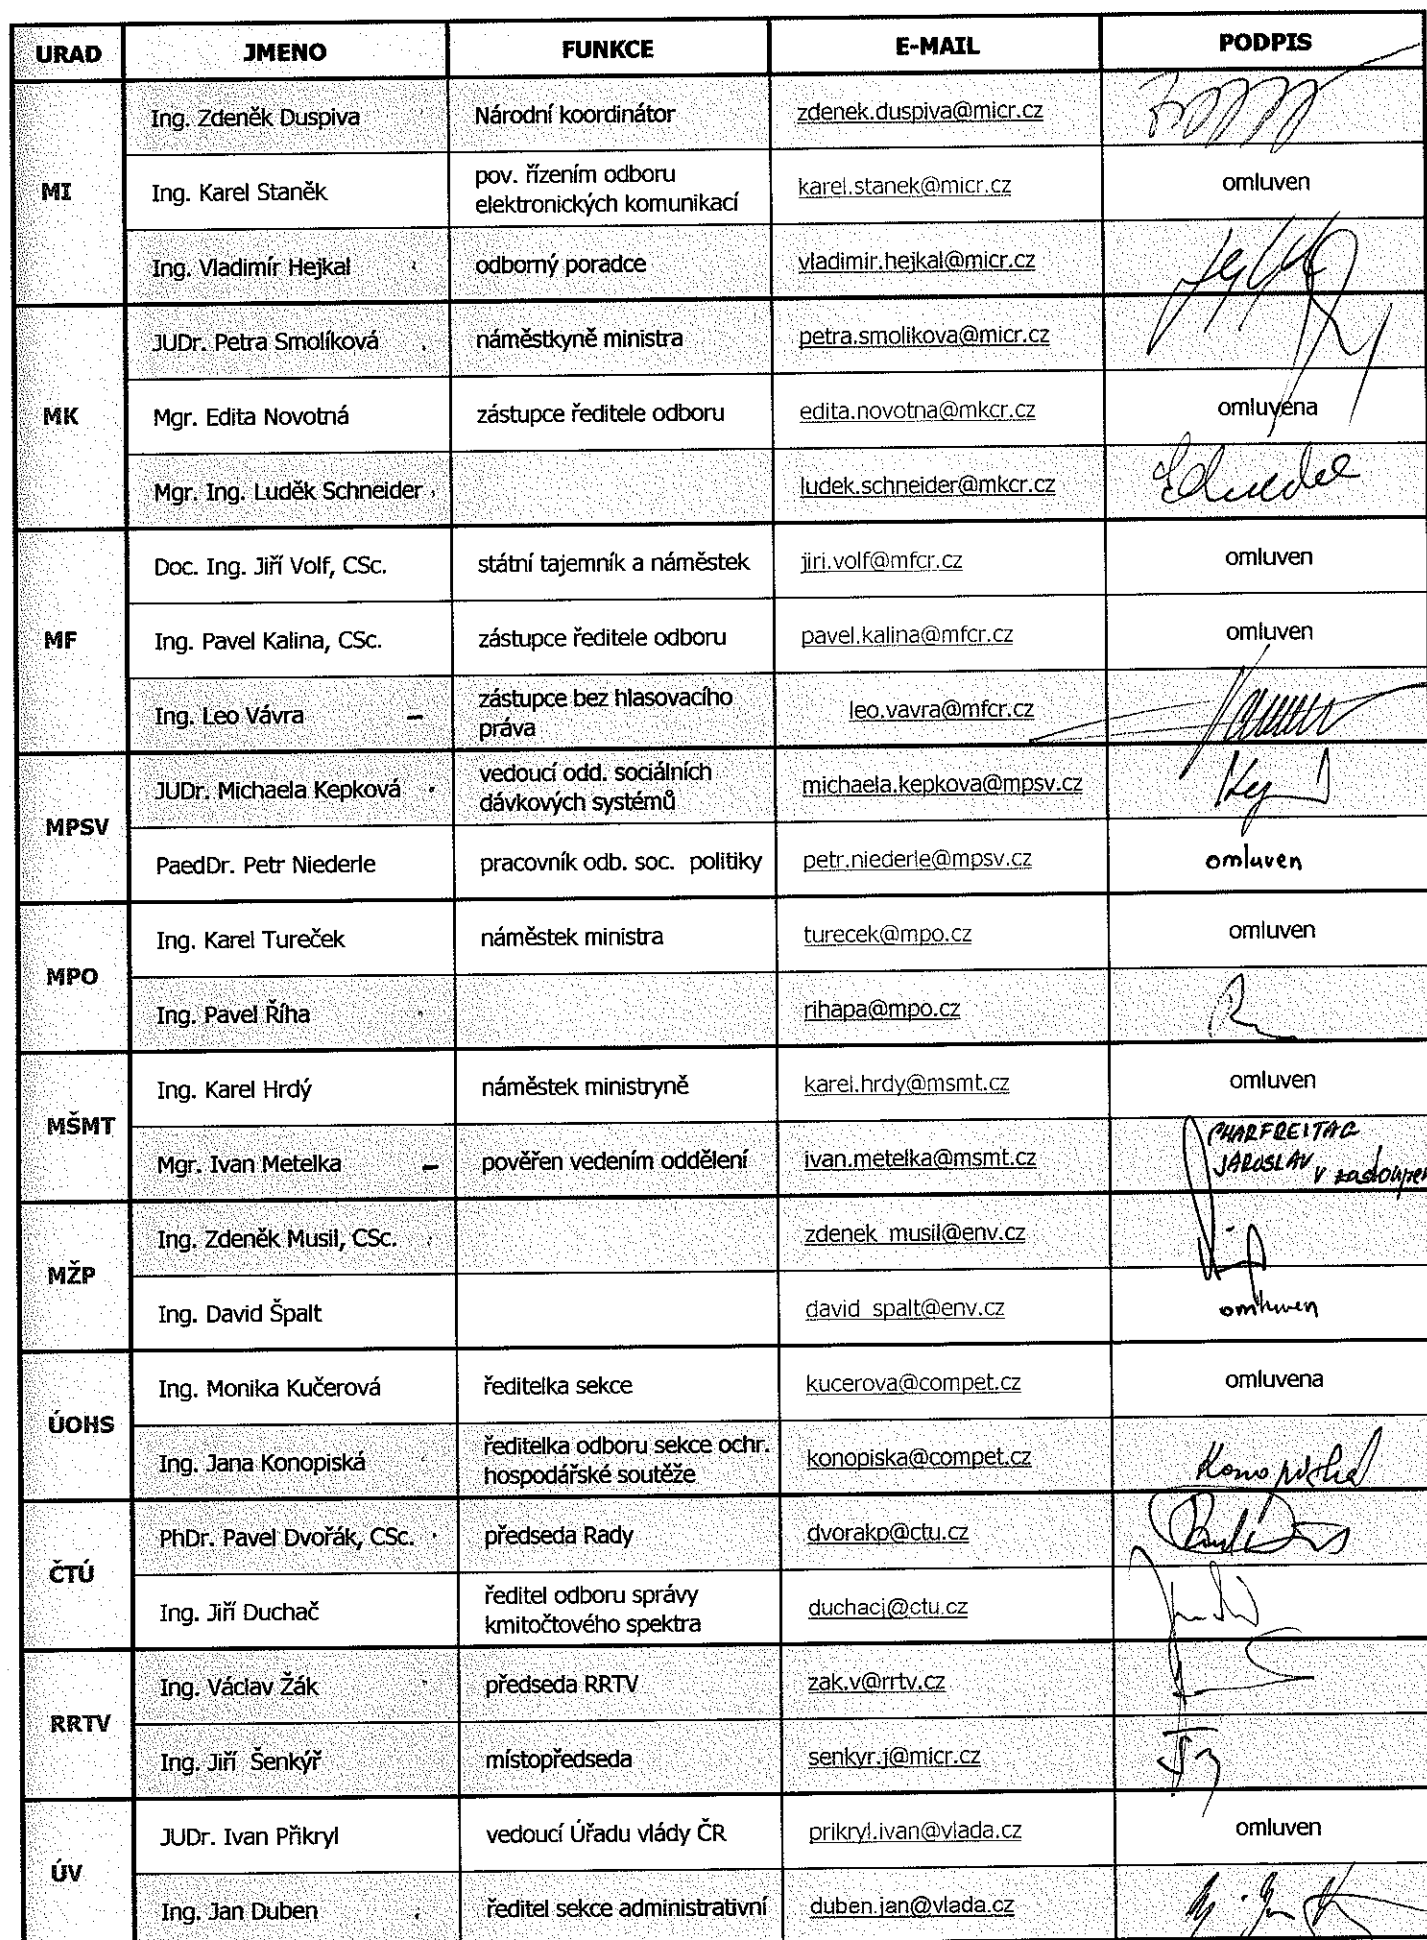 URAD JMENO FUNKCE E-MAIL PODPIS
MI
Ing. Zdeněk Duspiva Národní koordinátor zdenek.duspiva@micr.cz
Ing. Karel Staněk pov. řízením odboru elektronických komunikací karel.stanek@micr.cz omluven
Ing. Vladimír Hejkal odborný poradce vladimir.hejkal@micr.cz
MK
JUDr. Petra Smolíková náměstkyně ministra petra.smolikova@micr.cz
Mgr. Edita Novotná zástupce ředitele odboru edita.novotna@mkcr.cz omluvena
Mgr. Ing. Luděk Schneider ludek.schneider@mkcr.cz
MF
Doc. Ing. Jiří Volf, CSc. státní tajemník a náměstek jiri.volf@mfcr.cz omluven
Ing. Pavel Kalina, CSc. zástupce ředitele odboru pavel.kalina@mfcr.cz omluven
Ing. Leo Vávra – zástupce bez hlasovacího práva leo.vavra@mfcr.cz
MPSV
JUDr. Michaela Kepková vedoucí odd. sociálních dávkových systémů michaela.kepkova@mpsv.cz
PaedDr. Petr Niederle pracovník odb. soc. politiky petr.niederle@mpsv.cz omluven
MPO
Ing. Karel Tureček náměstek ministra turecek@mpo.cz omluven
Ing. Pavel Říha rihapa@mpo.cz
MŠMT
Ing. Karel Hrdý náměstek ministryně karel.hrdy@msmt.cz omluven
Mgr. Ivan Metelka – pověřen vedením oddělení ivan.metelka@msmt.cz CHARFREITAG JAROSLAV v zastoupení
MŽP
Ing. Zdeněk Musil, CSc. zdenek_musil@env.cz
Ing. David Špalt david_spalt@env.cz omluven
ÚOHS
Ing. Monika Kučerová ředitelka sekce kucerova@compet.cz omluvena
Ing. Jana Konopiská ředitelka odboru sekce ochr. hospodářské soutěže konopiska@compet.cz Konopiská
ČTÚ
PhDr. Pavel Dvořák, CSc. předseda Rady dvorakp@ctu.cz
Ing. Jiří Duchač ředitel odboru správy kmitočtového spektra duchacj@ctu.cz
RRTV
Ing. Václav Žák předseda RRTV zak.v@rrtv.cz
Ing. Jiří Šenkýř místopředseda senkyr.j@micr.cz
ÚV
JUDr. Ivan Přikryl vedoucí Úřadu vlády ČR prikryl.ivan@vlada.cz omluven
Ing. Jan Duben ředitel sekce administrativní duben.jan@vlada.cz